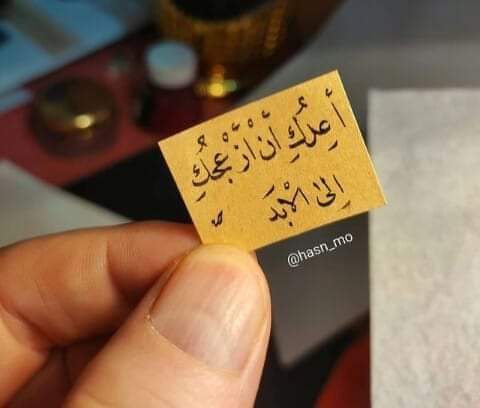 أَعِدُكِ أَنْ أُزْعِجُكِ
إِلىٰ الأبَد
@hasn_mo